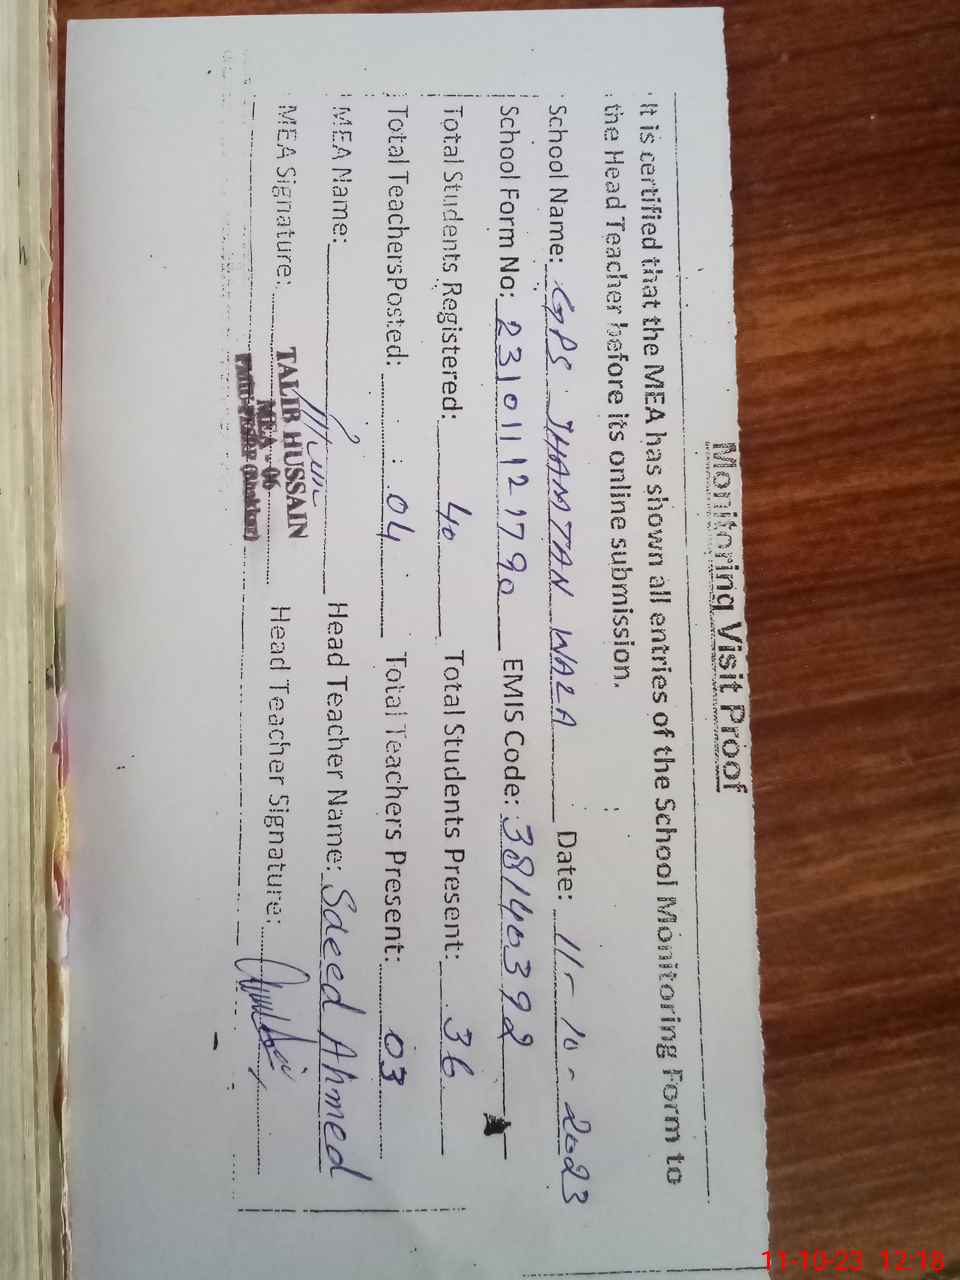 Monitoring Visit Proof
It is certified that the MEA has shown all entries of the School Monitoring Form to
the Head Teacher before its online submission.
School Name: GPS JHAMTAN WALA Date: 11-10-2023
School Form No: 231011121790 EMIS Code: 38140392
Total Students Registered: 40 Total Students Present: 36
Total TeachersPosted: 04 Total Teachers Present: 03
MEA Name: Head Teacher Name: Saeed Ahmed
MEA Signature: Head Teacher Signature:
TALIB HUSSAIN
MEA - 06
(Bhakkar)
11-10-23 12:18